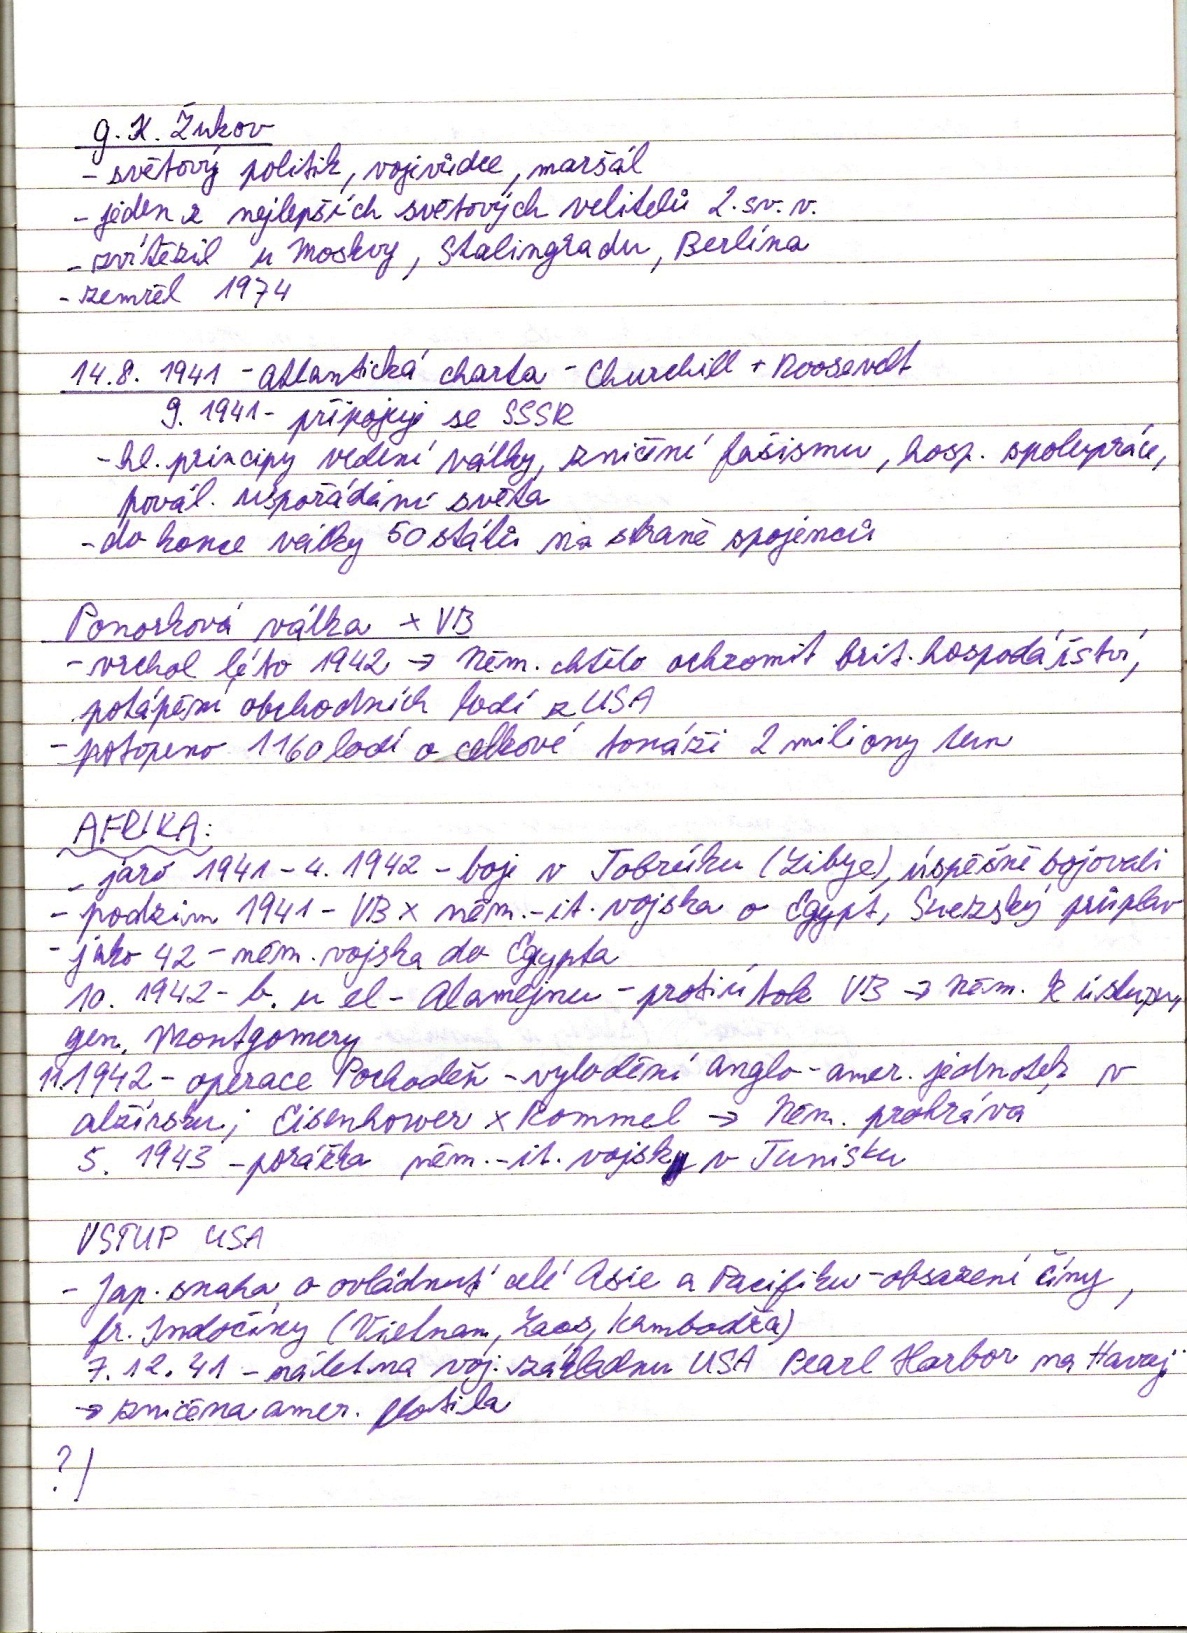 G. K. Žukov
- světový politik, vojevůdce, maršál
- jeden z nejlepších světových velitelů 2. sv. v.
- zvítězil u Moskvy, Stalingradu, Berlína
- zemřel 1974
14.8. 1941 - Atlantická charta - Churchill + Roosevelt
9. 1941 - připojuje se SSSR
- hl. principy vedení války, zničení fašismu, hosp. spolupráce,
povál. uspořádání světa
- do konce války 50 států na straně spojenců
Ponorková válka × VB
- vrchol léto 1942 → Něm. chtělo ochromit brit. hospodářství,
potápění obchodních lodí z USA
- potopeno 1160 lodí o celkové tonáži 2 miliony tun
AFRIKA:
- jaro 1941 - 4. 1942 - boje v Tobrúku (Libye), úspěšně bojovali
- podzim 1941 - VB × něm.-it. vojska o Egypt, Suezský průplav
- jaro 42 - něm. vojska do Egypta
10. 1942 - b. u el-Alamejnu - protiútok VB → Něm. k ústupu,
gen. Montgomery
11. 1942 - operace Pochodeň - vylodění anglo-amer. jednotek v
Alžírsku; Eisenhower × Rommel → Něm. prohrává
5. 1943 - porážka něm.-it. vojsk v Tunisku
VSTUP USA
- Jap. snaha o ovládnutí celé Asie a Pacifiku - obsazení Číny,
fr. Indočíny (Vietnam, Laos, Kambodža)
7.12.41 - nálet na voj. základnu USA Pearl Harbor na Havaji
→ zničena amer. flotila
?/